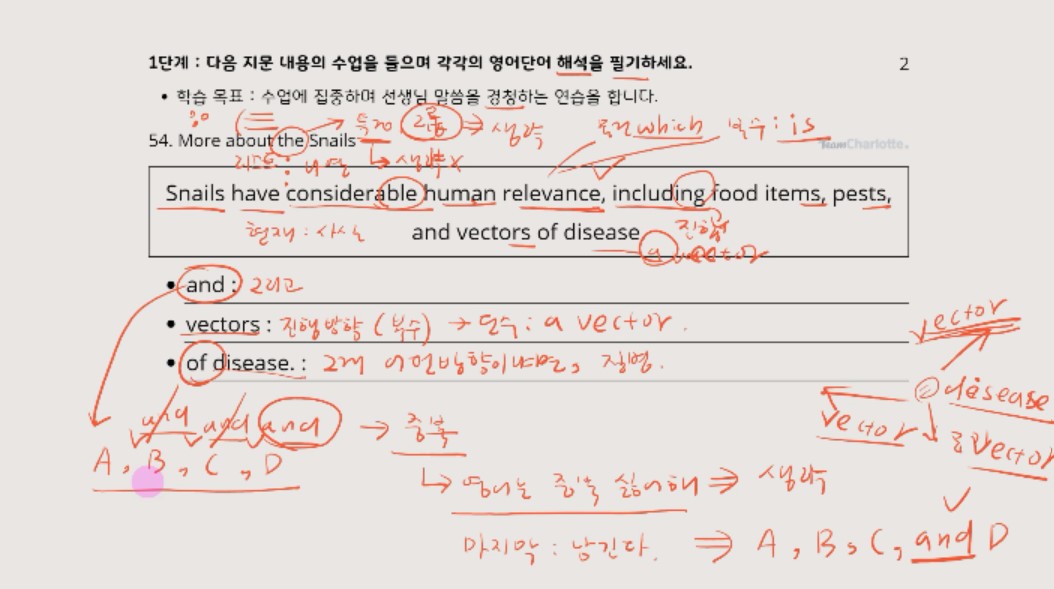 1단계 : 다음 지문 내용의 수업을 들으며 각각의 영어단어 해석을 필기하세요.
2
• 학습 목표 : 수업에 집중하며 선생님 말씀을 경청하는 연습을 합니다.
특정 그룹 ⇒ 생략
which 복수 : is
54. More about the Snails
TeamCharlotte.
생략 x
Snails have considerable human relevance, including food items, pests,
현재 : 사실
and vectors of disease
a vector
• and : 그리고
• vectors : 진행방향 (복수) → 단수 : a vector.
• of disease. : 그게 어떤방향이냐면, 질병.
vector
disease
vector
vector
and and and → 중복
A, B, C, D
↳ 영어는 중복 싫어해 ⇒ 생략
마지막 : 남긴다. ⇒ A, B, C, and D